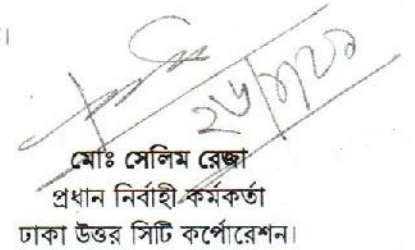 মোঃ সেলিম রেজা
প্রধান নির্বাহী কর্মকর্তা
ঢাকা উত্তর সিটি কর্পোরেশন।